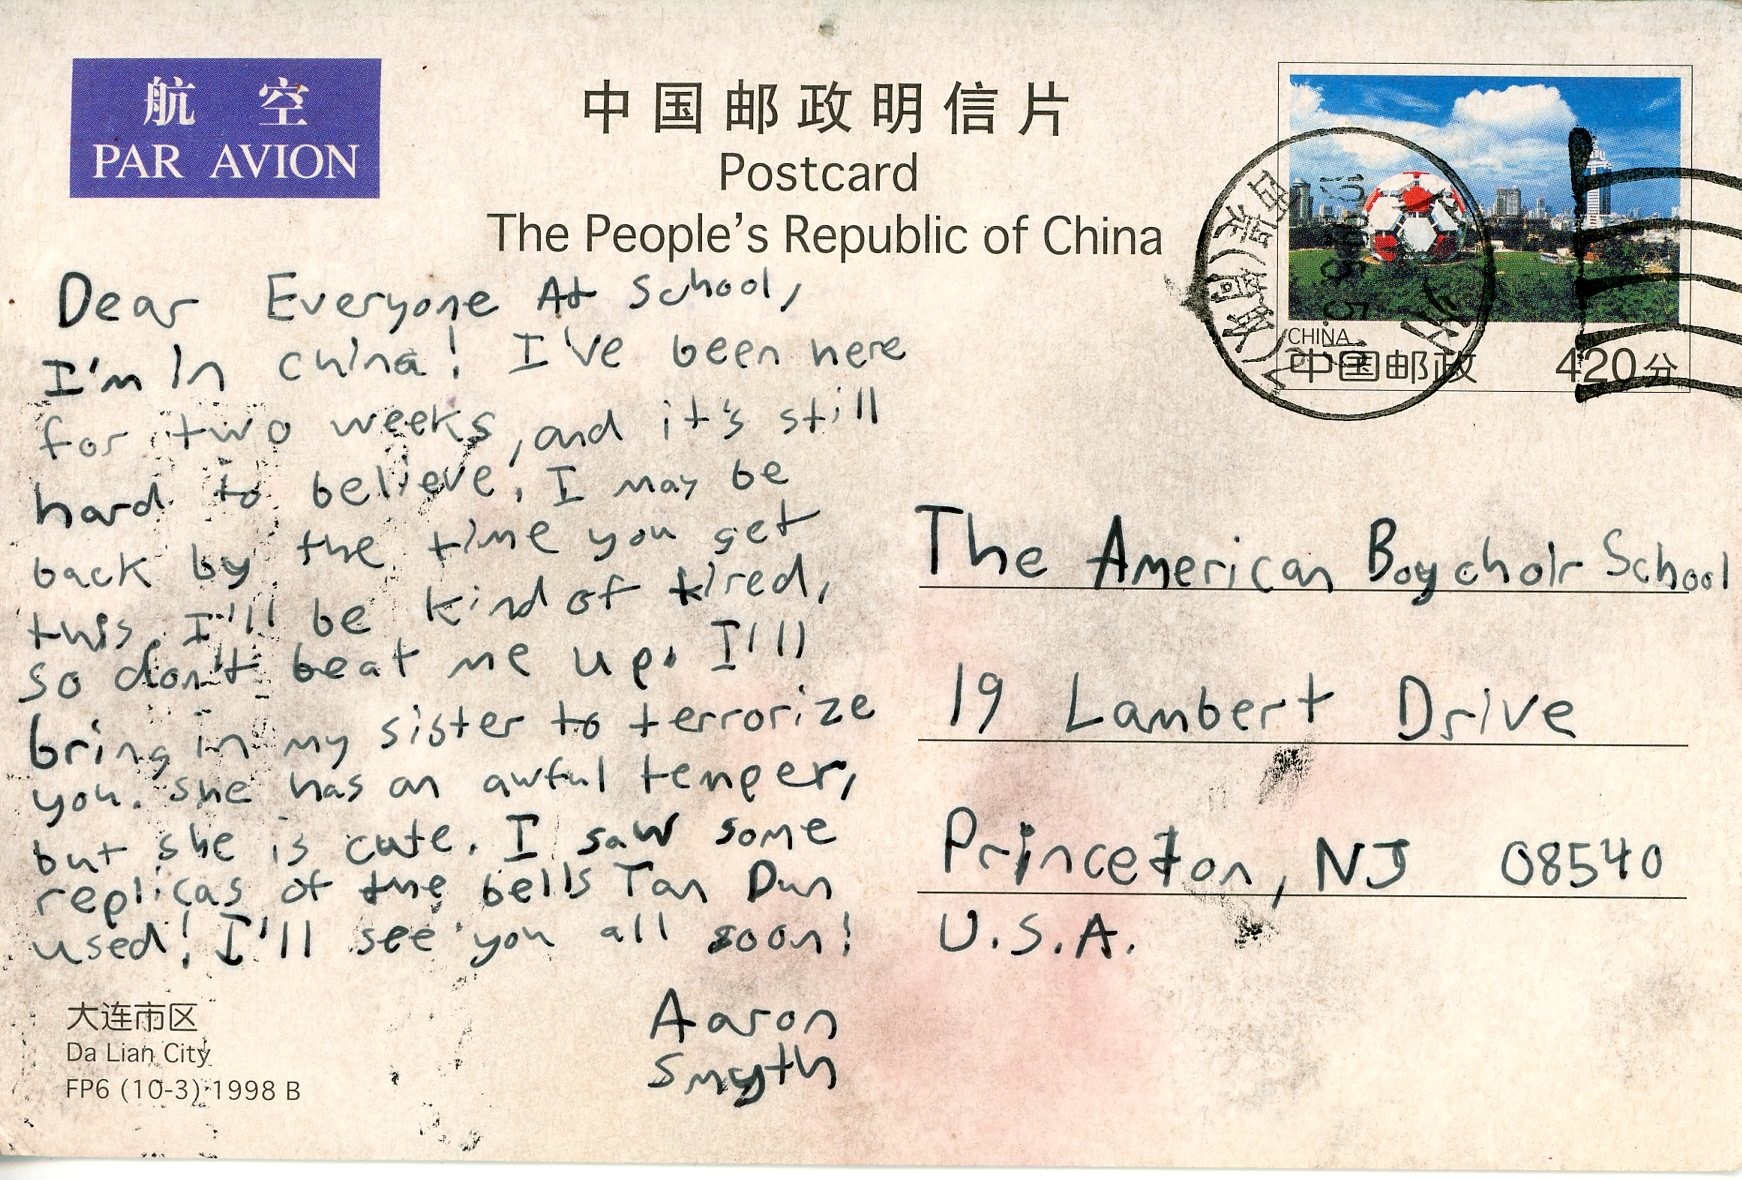 航 空
PAR AVION
中国邮政明信片
Postcard
The People's Republic of China
CHINA
中国邮政 420分
Dear Everyone At School,
I'm in china! I've been here
for two weeks, and it's still
hard to believe. I may be
back by the time you get
this. I'll be kind of tired,
so don't beat me up. I'll
bring in my sister to terrorize
you. she has an awful temper,
but she is cute. I saw some
replicas of the bells Tan Dun
used! I'll see you all soon!
Aaron
Smyth
The American Boychoir School
19 Lambert Drive
Princeton, NJ 08540
U.S.A.
大连市区
Da Lian City
FP6 (10-3) 1998 B